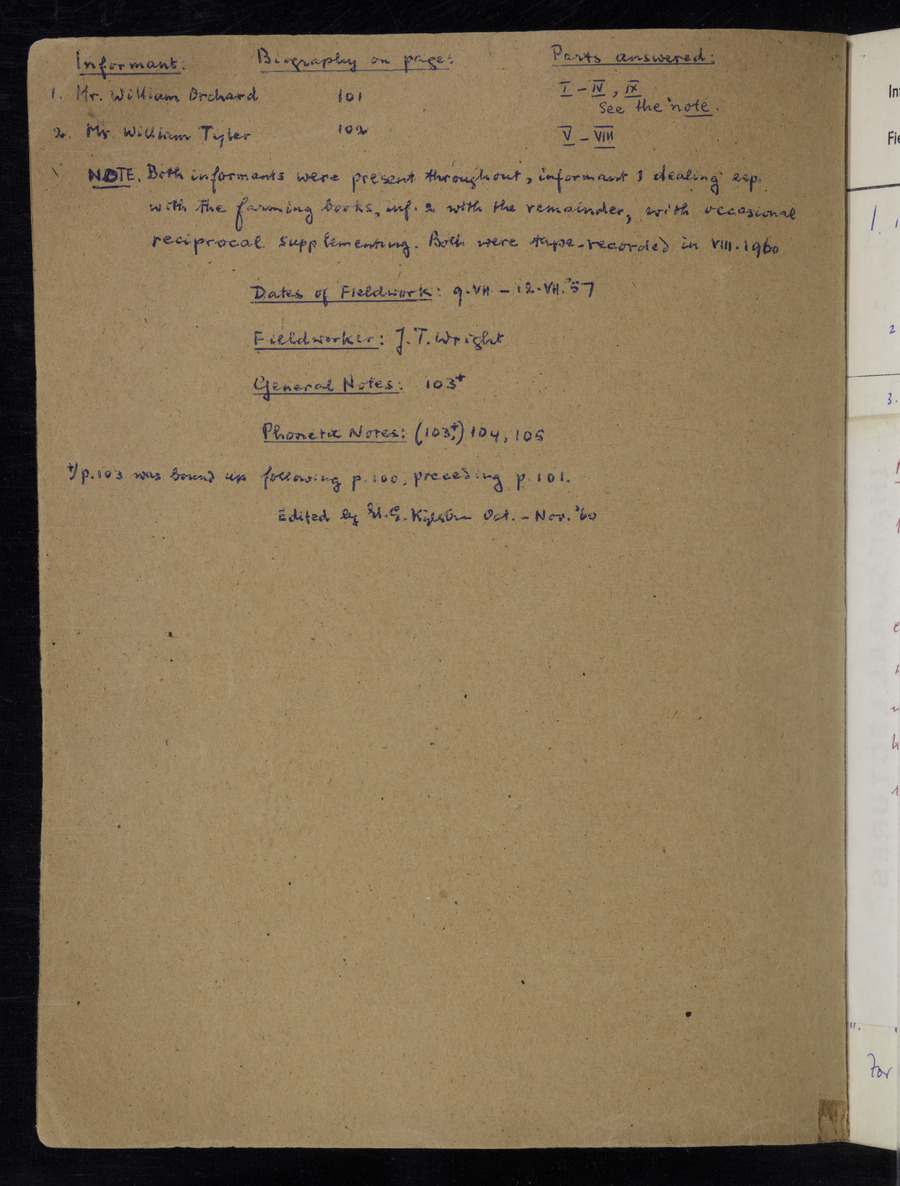 Informant: Biography on page: Parts answered:
1. Mr. William Orchard 101 I – IV, IX
see the note.
2. Mr. William Tyler 102 V – VIII
NOTE. Both informants were present throughout, informant 1 dealing esp.
with the farming books, inf. 2 with the remainder, with occasional
reciprocal supplementing. Both were tape-recorded in VIII. 1960
Dates of Fieldwork: 9.VII – 12.VII.'57
Fieldworker: J.T. Wright
General Notes: 103+
Phonetic Notes: (103+) 104, 105
+/p.103 was bound up following p.100, preceding p.101.
Edited by Oct. – Nov. '60
In
Fie
1.
2
3.
For